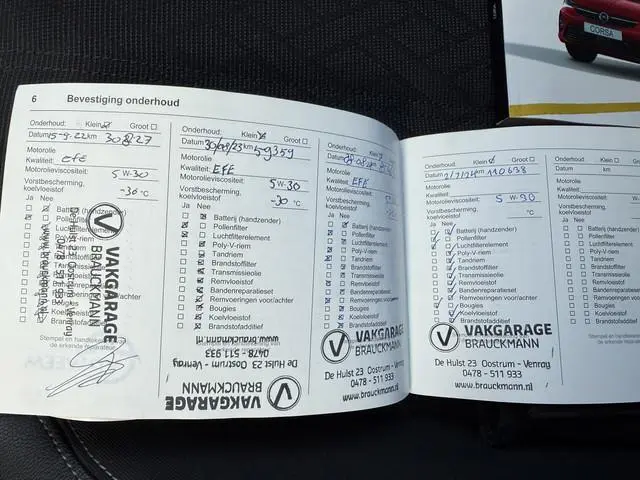 CORSA
6 Bevestiging onderhoud
Onderhoud: Klein Groot
Datum 15-9-22 km 30827
Motorolie
Kwaliteit: EFE
Motorviscositeit: 5 W-30
Vorstbescherming,
koelvloeistof -30 °C
Ja Nee
Batterij (handzender)
Pollenfilter
Poly-V-riem
VAKGARAGE
BRAUCKMANN
De Hulst 23 Oostrum - Venray
0478 - 511 933
www.brauckmann.nl
Stempel en handtekening
Onderhoud: Klein Groot
Datum 30/08/23 km 59359
Motorolie
Kwaliteit: EFE
Motorolieviscositeit: 5 W-30
Vorstbescherming,
koelvloeistof -30 °C
Ja Nee
Batterij (handzender)
Pollenfilter
Luchtfilterelement
Poly-V-riem
Tandriem
Brandstoffilter
Transmissieolie
Remvloeistof
Bandenreparatieset
Remvoeringen voor/achter
Bougies
Koelvloeistof
Brandstofadditief
VAKGARAGE
BRAUCKMANN
De Hulst 23 Oostrum - Venray
0478 - 511 933
www.brauckmann.nl
Onderhoud: Klein
Datum
Motorolie
Kwaliteit: EFE
Motorolieviscositeit: 5 W-30
Vorstbescherming,
koelvloeistof
Ja Nee
Batterij (handzender)
Pollenfilter
Luchtfilterelement
Poly-V-riem
Tandriem
Brandstoffilter
Transmissieolie
Remvloeistof
Bandenreparatieset
Remvoeringen voor/achter
Bougies
Koelvloeistof
Brandstofadditief
VAKGARAGE
BRAUCKMANN
De Hulst 23 Oostrum - Venray
0478 - 511 933
www.brauckmann.nl
Onderhoud: Klein Groot
Datum 2/7/24 km 110638
Motorolie
Kwaliteit:
Motorolieviscositeit: 5 W-30
Vorstbescherming,
koelvloeistof °C
Ja Nee
Batterij (handzender)
Pollenfilter
Luchtfilterelement
Poly-V-riem
Tandriem
Brandstoffilter
Transmissieolie
Remvloeistof
Bandenreparatieset
Remvoeringen voor/achter
Bougies
Koelvloeistof
Brandstofadditief
VAKGARAGE
BRAUCKMANN
De Hulst 23 Oostrum - Venray
0478 - 511 933
www.brauckmann.nl
Onderhoud: Klein
Datum km
Motorolie
Kwaliteit:
Motorolieviscositeit:
Vorstbescherming,
koelvloeistof
Ja Nee
Batterij (handzender)
Pollenfilter
Luchtfilterelement
Poly-V-riem
Tandriem
Brandstoffilter
Transmissieolie
Remvloeistof
Bandenreparatieset
Remvoeringen
Bougies
Koelvloeistof
Brandstofadditief